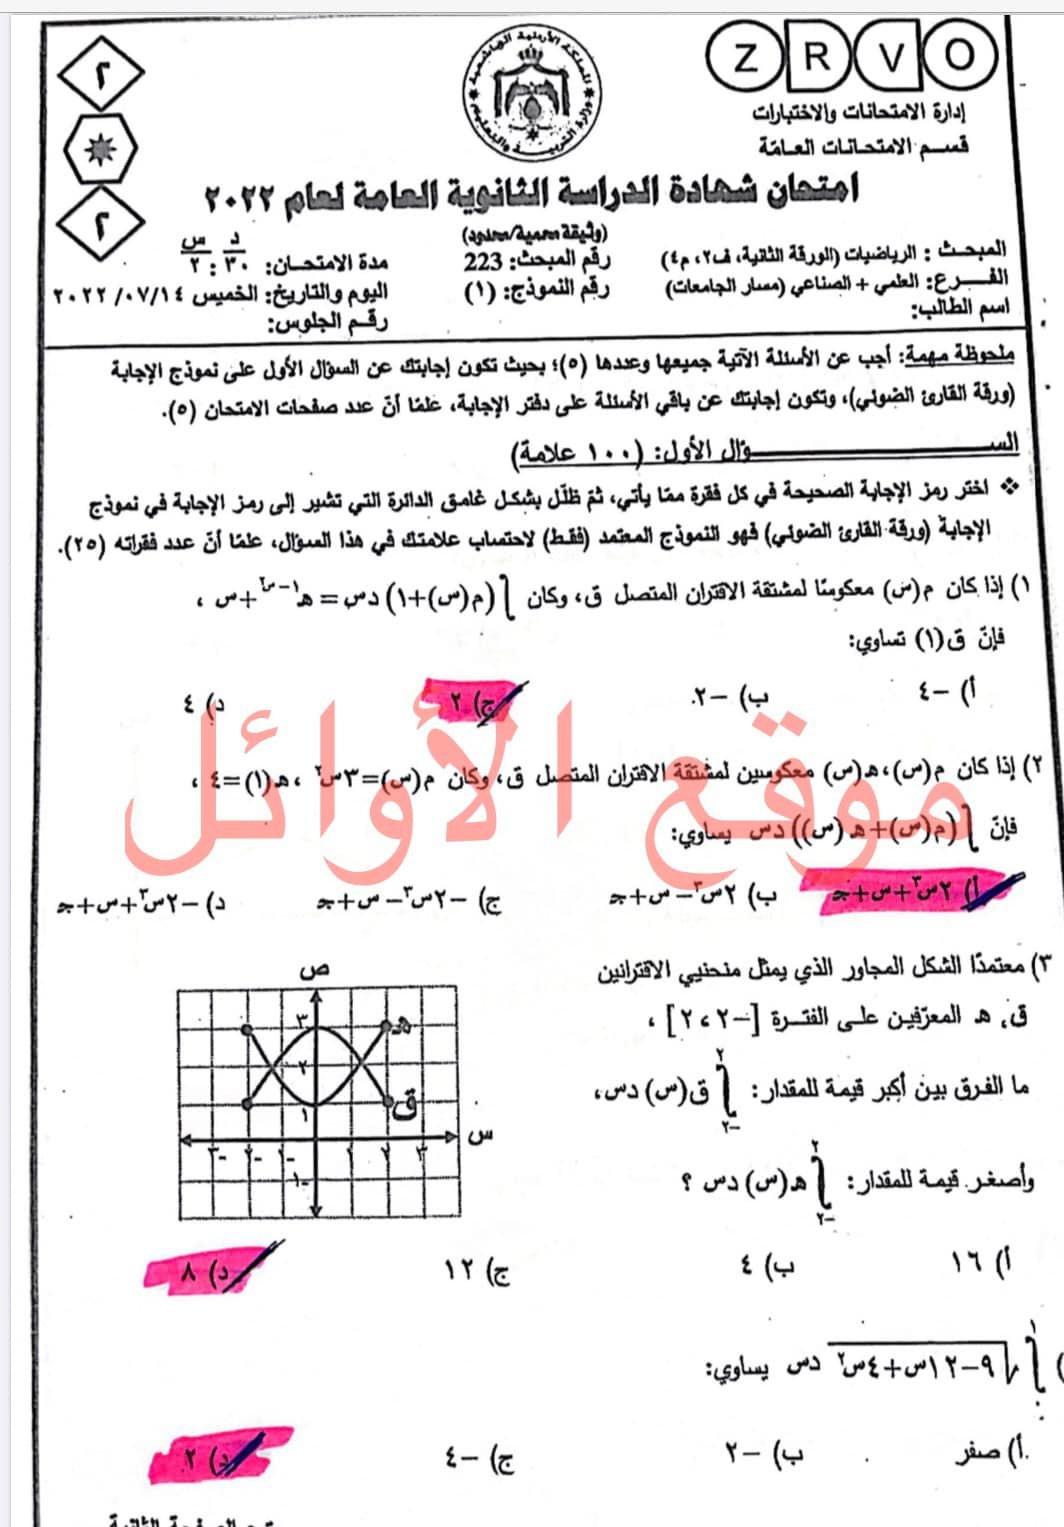 Z R V O
إدارة الامتحانات والاختبارات
قسم الامتحانات العامة
٢
٢
امتحان شهادة الدراسة الثانوية العامة لعام ٢٠٢٢
(وثيقة محمية/محدود)
د س
المبحث : الرياضيات (الورقة الثانية، ف٢، م٤) رقم المبحث: 223 مدة الامتحان: ٣٠ : ٢
الفرع: العلمي + الصناعي (مسار الجامعات) رقم النموذج: (١) اليوم والتاريخ: الخميس ٢٠٢٢/٠٧/١٤
اسم الطالب: رقم الجلوس:
ملحوظة مهمة: أجب عن الأسئلة الآتية جميعها وعددها (٥)؛ بحيث تكون إجابتك عن السؤال الأول على نموذج الإجابة
(ورقة القارئ الضوئي)، وتكون إجابتك عن باقي الأسئلة على دفتر الإجابة، علمًا أنّ عدد صفحات الامتحان (٥).
الســـــــــــــــــــــــؤال الأول: (١٠٠ علامة)
❖ اختر رمز الإجابة الصحيحة في كل فقرة ممّا يأتي، ثمّ ظلّل بشكل غامق الدائرة التي تشير إلى رمز الإجابة في نموذج
الإجابة (ورقة القارئ الضوئي) فهو النموذج المعتمد (فقط) لاحتساب علامتك في هذا السؤال، علمًا أنّ عدد فقراته (٢٥).
١) إذا كان م(س) معكوسًا لمشتقة الاقتران المتصل ق، وكان ∫(م(س)+١) دس = هـ^(١−س²) + س ،
فإنّ ق(١) تساوي:
أ) −٤ ب) −٢ ج) ٢ د) ٤
٢) إذا كان م(س)، هـ(س) معكوسين لمشتقة الاقتران المتصل ق، وكان م(س)=٣س² ، هـ(١)=٤ ،
فإنّ ∫(م(س)+هـ(س)) دس يساوي:
أ) ٢س³+س+جـ ب) ٢س³−س+جـ ج) −٢س³−س+جـ د) −٢س³+س+جـ
موقع الأوائل
٣) معتمدًا الشكل المجاور الذي يمثل منحنيي الاقترانين
ق، هـ المعرّفين على الفترة [−٢، ٢] ،
ما الفرق بين أكبر قيمة للمقدار: ∫₋٢^٢ ق(س) دس،
وأصغر قيمة للمقدار: ∫₋٢^٢ هـ(س) دس ؟
ص
٣
هـ
٢
١
ق
س
−٣ −٢ −١ ١ ٢ ٣
−١
أ) ١٦ ب) ٤ ج) ١٢ د) ٨
) ∫^١ √(٩−١٢س+٤س²) دس يساوي:
أ) صفر ب) −٢ ج) −٤ د) ٢